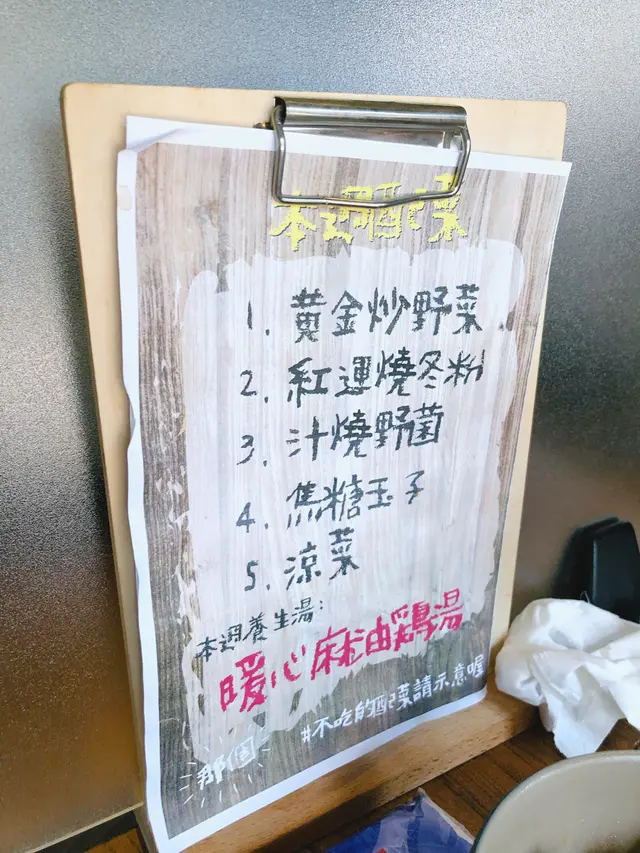 本週配菜
1. 黃金炒野菜
2. 紅運燒冬粉
3. 汁燒野菌
4. 焦糖玉子
5. 涼菜
本週養生湯:
暖心麻油鷄湯
#不吃的配菜請示意喔
那個